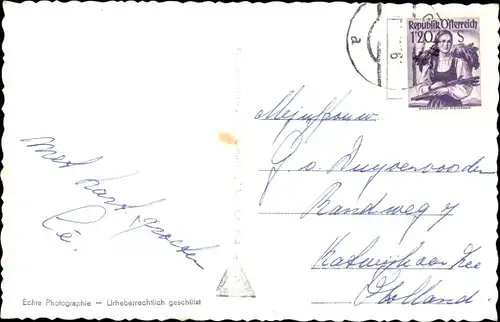 Republik Österreich
1'20 S
a
Mejuffrouw.
G. v. Duyvenvooden
Randweg 7
Katwijk aan Zee
Holland.
met hart. groeten
Lé.
Echte Photographie — Urheberrechtlich geschützt